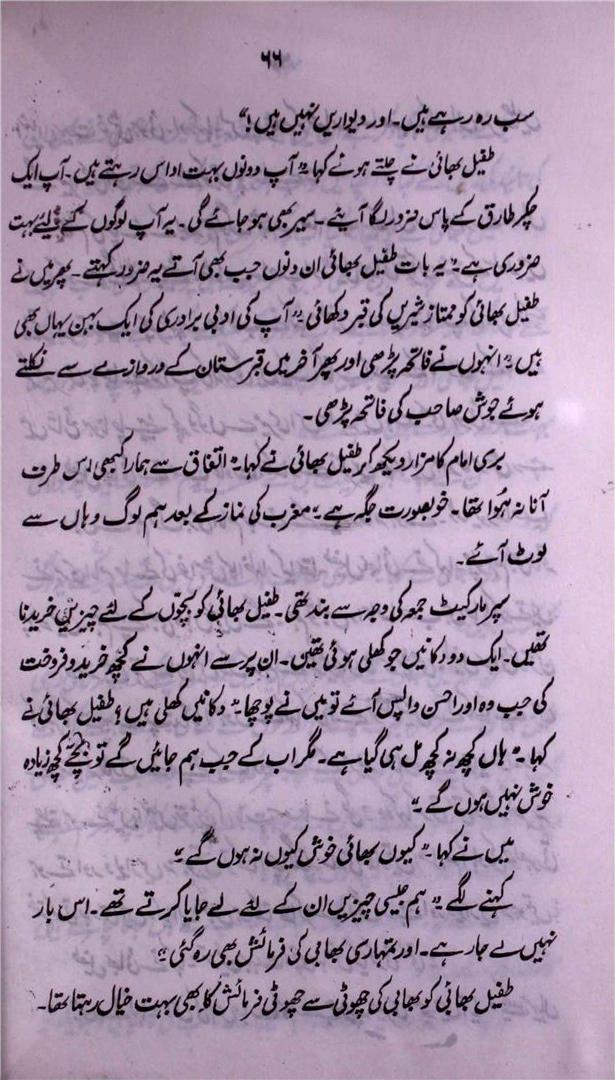 ۶۶
سب رہ رہے ہیں۔ اور دیواریں نہیں ہیں!"
طفیل بھائی نے چلتے ہوئے کہا "آپ دونوں بہت اداس رہتے ہیں۔ آپ ایک
چکر طارق کے پاس ضرور لگا آیئے۔ سیر بھی ہو جائے گی۔ یہ آپ لوگوں کے لیے بہت
ضروری ہے۔" یہ بات طفیل بھائی ان دنوں جب بھی آتے یہ ضرور کہتے۔ پھر میں نے
طفیل بھائی کو ممتاز شیریں کی قبر دکھائی "آپ کی ادبی برادری کی ایک بہن یہاں بھی
ہیں" انہوں نے فاتحہ پڑھی اور پھر آخر میں قبرستان کے دروازے سے نکلتے
ہوئے جوش صاحب کی فاتحہ پڑھی۔
بری امام کا مزار دیکھ کر طفیل بھائی نے کہا "اتفاق سے ہمارا کبھی اس طرف
آنا نہ ہُوا تھا۔ خوبصورت جگہ ہے" مغرب کی نماز کے بعد ہم لوگ وہاں سے
لوٹ آئے۔
سپر مارکیٹ جمعہ کی وجہ سے بند تھی۔ طفیل بھائی کو بچوں کے لئے چیزیں خریدنا
تھیں۔ ایک دو دکانیں جو کھلی ہوئی تھیں۔ ان پر سے انہوں نے کچھ خرید و فروخت
کی جب وہ اور احسن واپس آئے تو میں نے پوچھا "دکانیں کھلی ہیں؟ طفیل بھائی نے
کہا۔ "ہاں کچھ نہ کچھ مل ہی گیا ہے۔ مگر اب کے جب ہم جائیں گے تو بچے کچھ زیادہ
خوش نہیں ہوں گے۔"
میں نے کہا۔ "کیوں بھائی خوش کیوں نہ ہوں گے"
کہنے لگے "ہم جیسی چیزیں ان کے لئے لے جایا کرتے تھے۔ اس بار
نہیں لے جا رہے۔ اور تمہاری بھابی کی فرمائش بھی رہ گئی"
طفیل بھائی کو بھابی کی چھوٹی سے چھوٹی فرمائش کا بھی بہت خیال رہتا تھا۔